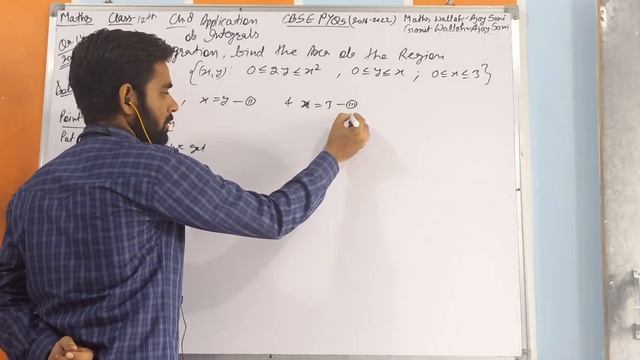 Maths Class-12th Ch.8 Application of Integrals CBSE PYQs (2016-2022) Maths Wallah-Ajay Soni
gration, find the Area of the Region
{(x,y): 0≤2y≤x², 0≤y≤x ; 0≤x≤3}
, x=y-(ii) & x=3-(iii)
Point
Put get